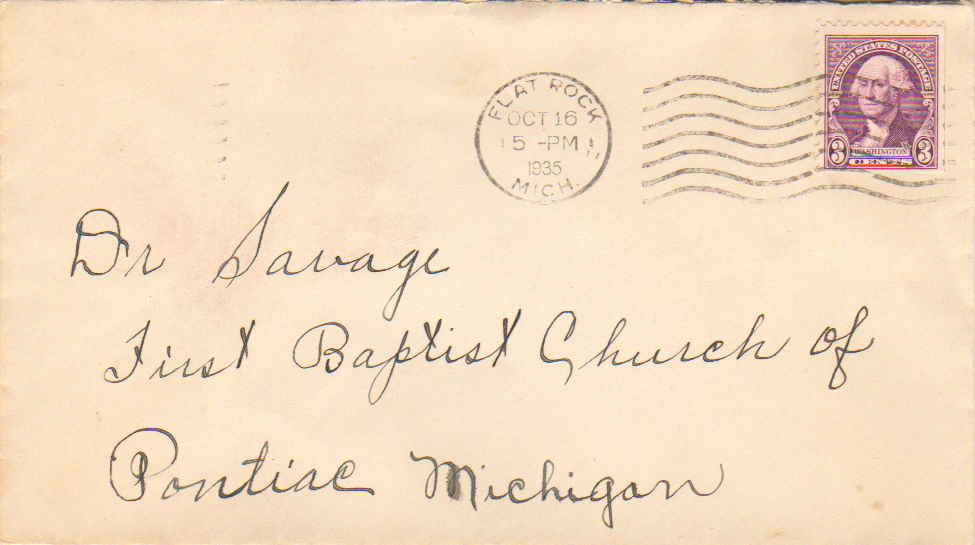 FLAT ROCK
OCT 16
5 -PM
1935
MICH.
UNITED STATES POSTAGE
WASHINGTON
3 CENTS 3
Dr Savage
First Baptist Church of
Pontiac Michigan